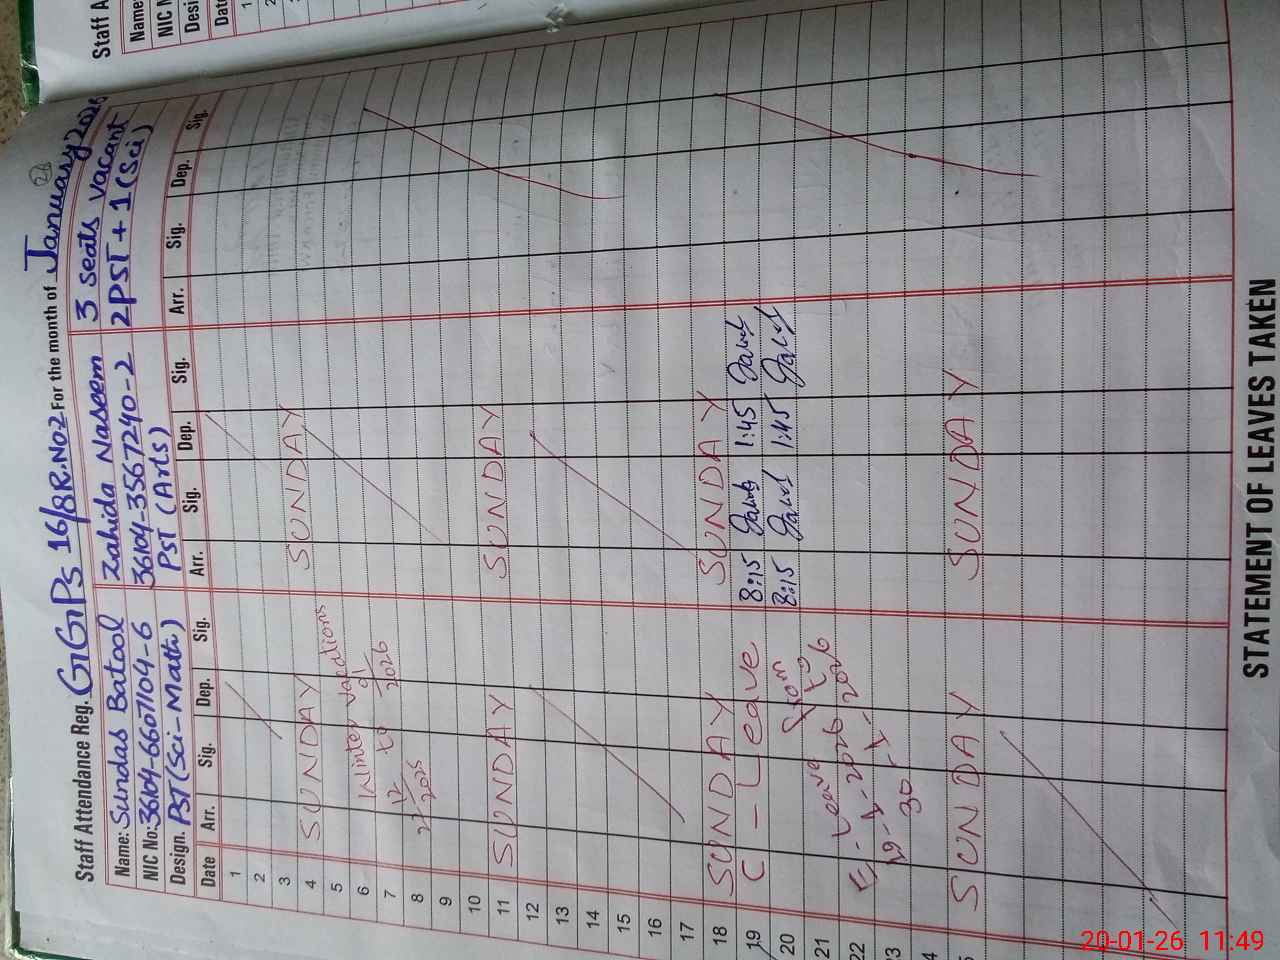 Staff A
Name
NIC N
Desi
Dat
1
2
Staff Attendance Reg. GGPS 16/8R.No2 For the month of January 2026
Name: Sundas Batool Zahida Naseem 3 seats vacant
NIC No: 36104-6607104-6 36104-3567240-2 2PST + 1 (Sci)
Design. PST (Sci-Math) PST (Arts)
Date Arr. Sig. Dep. Sig. Arr. Sig. Dep. Sig. Arr. Sig. Dep. Sig.
1
2
3
4 SUNDAY SUNDAY
5
6 Winter vacations
7 to
8
9
10
11 SUNDAY SUNDAY
12
13
14
15
16
17
18 SUNDAY SUNDAY
19 C-Leave 8:15 1:45
20 From 8:15 1:45
21 Leave to
22
23 30
24
5 SUNDAY SUNDAY
STATEMENT OF LEAVES TAKEN
20-01-26 11:49